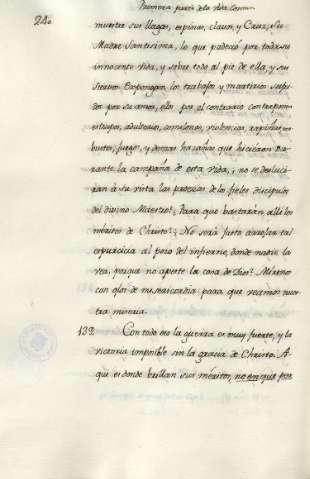 240
Primera parte de la vida Comun
muestra sus llagas, espinas, clavos, y Cruz, su
Madre Santisima, lo que padeció por toda su
innocente vida, y sobre todo al pie de ella, y su
trabajos y martirios sufri-
dos por su amor, ellos por el contrario contrapon
estupos, adulterios, omisiones, violencias, rapiñas, em
bustes, juegos, y demas hazañas que hicieron du-
rante la campaña de esta vida, no se desluci-
rán à su vista las proezas de los fieles discipulos
del divino Maestro? Para que bastarán allí los
meritos de Christo? No será justo arrojar tal
espurcicia al pozo del infierno, donde nadie la
vea, porque no aparte la cara de Dios? Miremo
con ojos de misericordia para que veamos nues-
tra miseria.
132. Con todo eso la guerra es muy fuerte, y la
victoria imposible sin la gracia de Christo. A
qui es donde brillan sus méritos, no en que pose